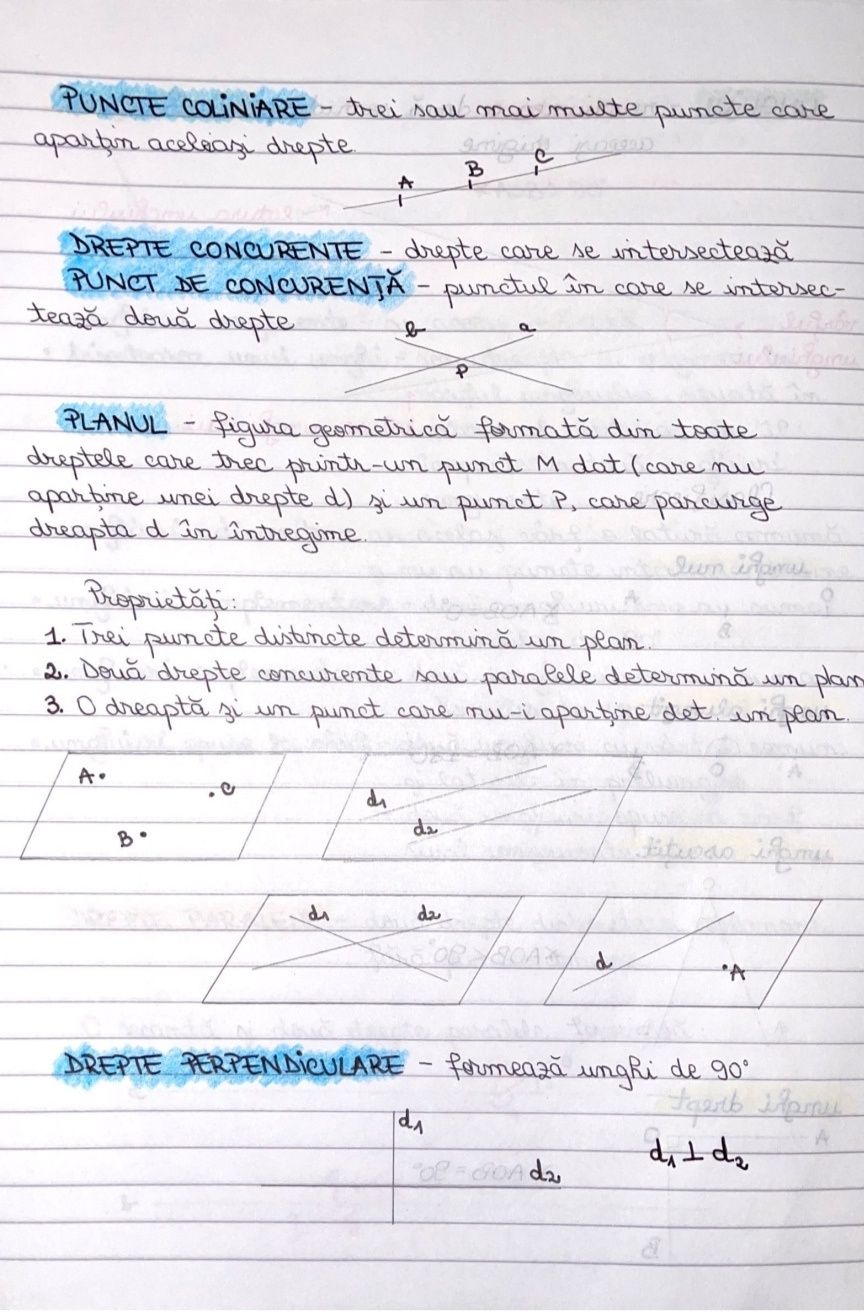 PUNCTE COLINIARE - trei sau mai multe puncte care
aparțin aceleiași drepte.
A B C
DREPTE CONCURENTE - drepte care se intersectează
PUNCT DE CONCURENȚĂ - punctul în care se intersec-
tează două drepte
b a
P
PLANUL - figura geometrică formată din toate
dreptele care trec printr-un punct M dat (care nu
aparține unei drepte d) și un punct P, care parcurge
dreapta d în întregime.
Proprietăți:
1. Trei puncte distincte determină un plan.
2. Două drepte concurente sau paralele determină un plan
3. O dreaptă și un punct care nu-i aparține det. un plan.
A C
B
d1
d2
d1 d2
d A
DREPTE PERPENDICULARE - formează unghi de 90°
d1
d2
d1 ⊥ d2